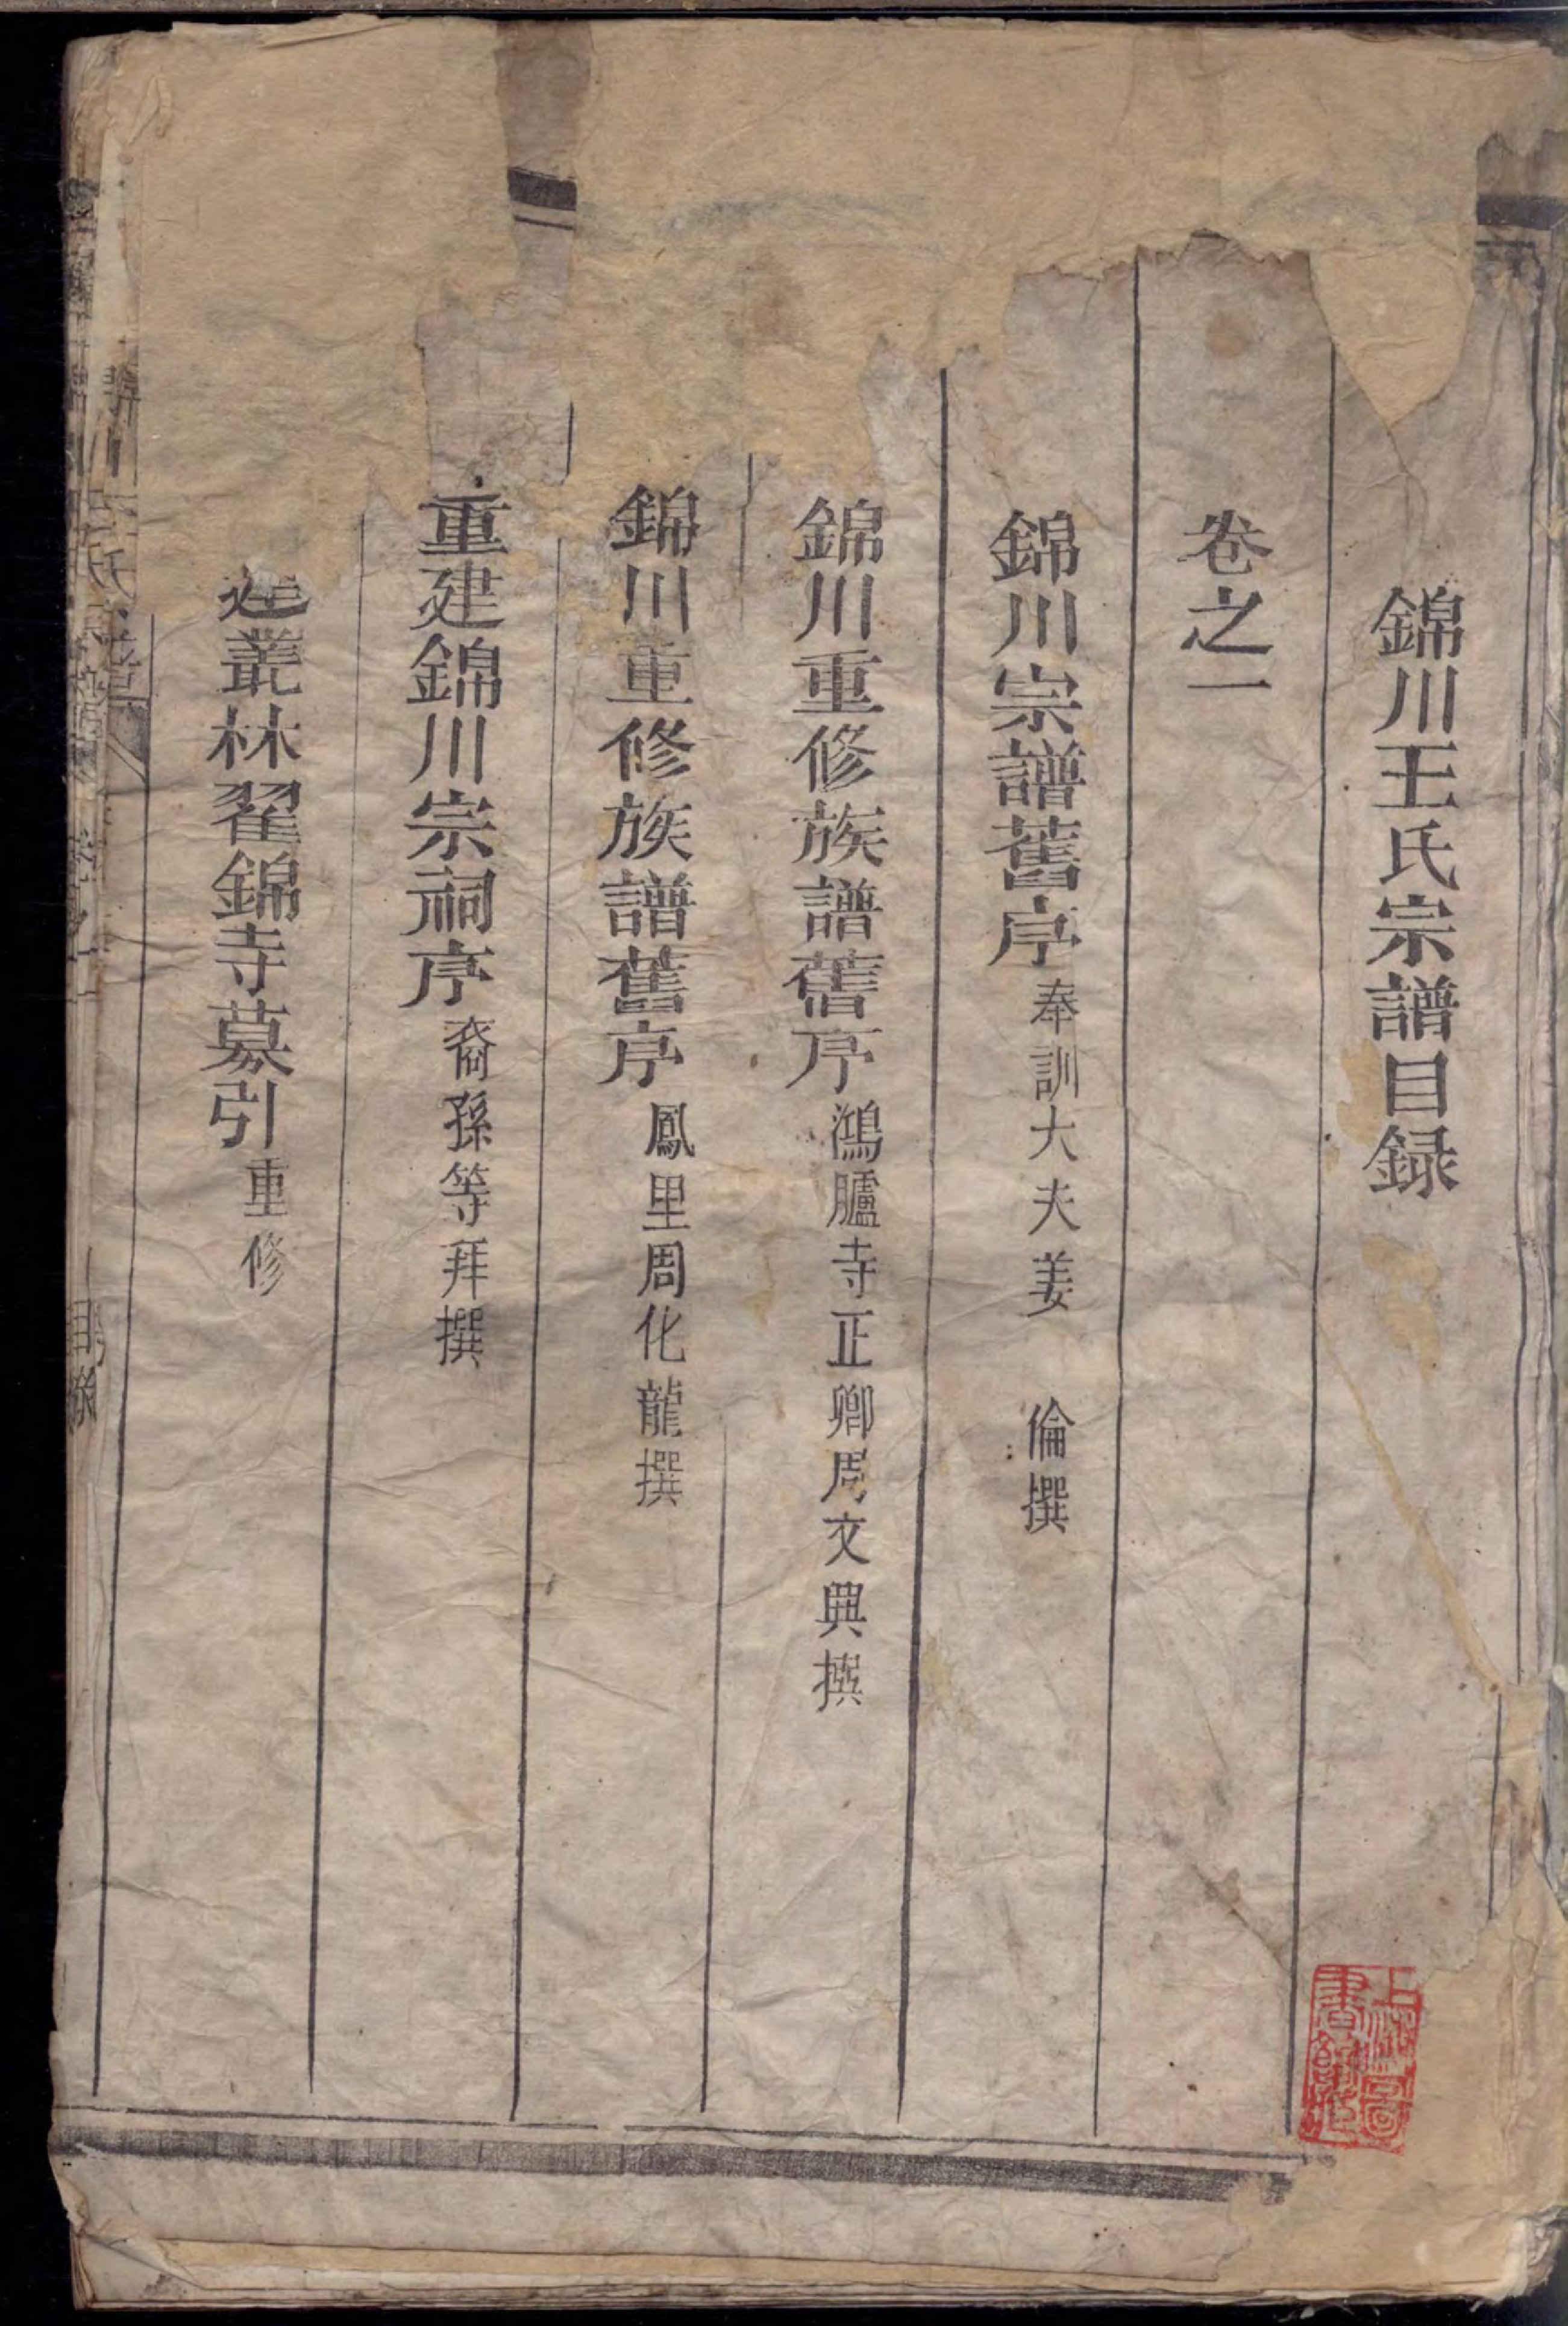 錦川王氏宗譜目録
卷之一
錦川宗譜舊序 奉訓大夫姜 倫撰
錦川重修族譜舊序 鴻臚寺正卿周文興撰
錦川重修族譜舊序 鳳里周化龍撰
重建錦川宗祠序 裔孫等拜撰
建叢林翟錦寺募引 重修
卷之一
目錄
上海圖
書館藏